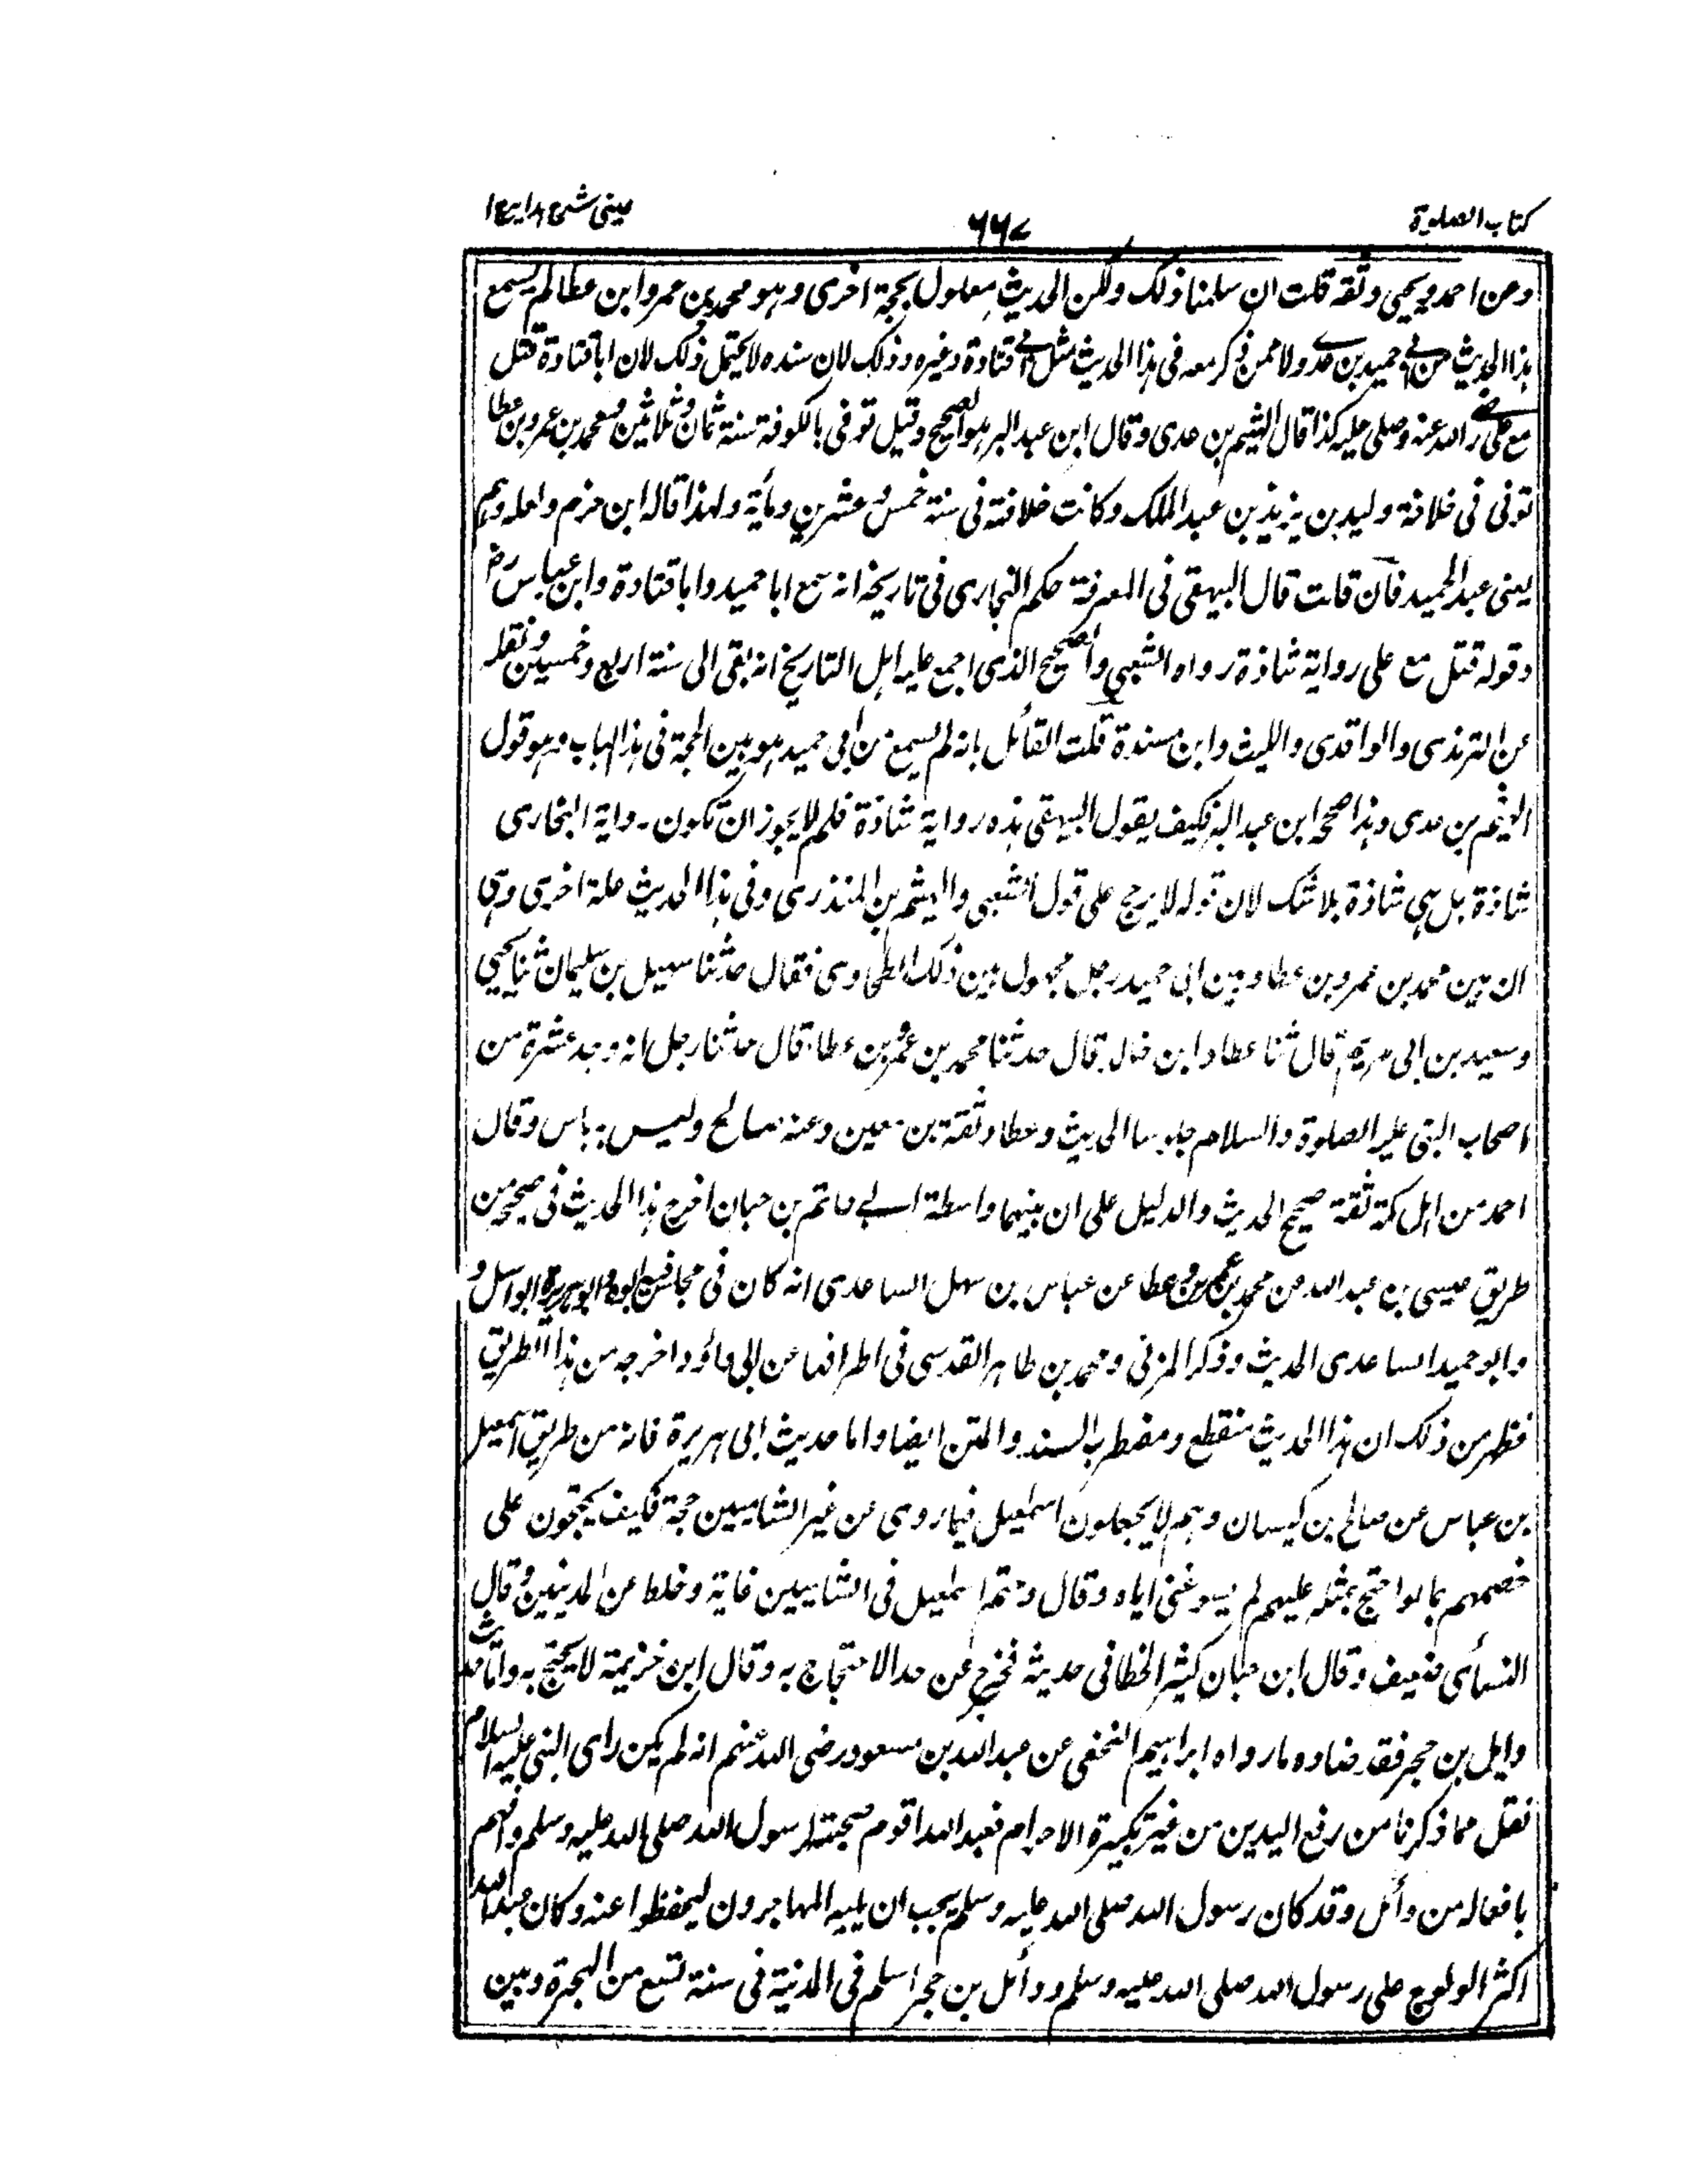 كتاب الصلوة
٦٦٧
عينى شرح هداية ج ا
وعن احمد ويحيى وثقه قلت ان سلمنا ذلك ولكن الحديث معلول بحجة اخرى وهو محمد بن عمرو ابن عطا لم يسمع
هذا الحديث من ابى حميد بن ولا ممن ذكر معه فى هذا الحديث مثل ابى قتادة وغيره وذلك لان سنده لا يحتمل ذلك لان ابا قتادة قتل
مع على رض الله عنه وصلى عليه كذا قال الهيثم بن عدى وقال ابن عبد البر هو الصحيح وقيل توفى بالكوفة سنة ثمان وثلاثين ومحمد بن عمرو بن عطا
توفى فى خلافة وليد بن يزيد بن عبد الملك وكانت خلافته فى سنة خمس وعشرين ومأية ولهذا قاله ابن حزم ولعله وهم
يعنى عبد الحميد فان قلت قال البيهقى فى المعرفة حكم البخارى فى تاريخه انه سمع ابا حميد وابا قتادة وابن عباس رض
وقوله قتل مع على رواية شاذة رواه الشعبى والصحيح الذى اجمع عليه اهل التاريخ انه بقى الى سنة اربع وخمسين ونقله
عن الترمذى والواقدى والليث وابن مندة قلت القائل بانه لم يسمع من ابى حميد هو بين الحجة فى هذا الباب وهو قول
الهيثم بن عدى وهذا صححه ابن عبد البر فكيف يقول البيهقى هذه رواية شاذة فلم لا يجوز ان تكون رواية البخارى
شاذة بل هى شاذة بلا شك لان قوله لا يرجح على قول الشعبى والهيثم بن المنذرى وفى هذا الحديث علة اخرى وهى
ان بين محمد بن عمرو بن عطا وبين ابى حميد رجل مجهول بين ذلك الطحاوى فقال حدثنا سهيل بن سليمان ثنا يحيى
وسعيد بن ابى مريم قال ثنا عطاء ابن خالد قال حدثنا محمد بن عمرو بن عطا قال حدثنا رجل انه وجد عشرة من
اصحاب النبى عليه الصلوة والسلام جلوسا الحديث وعطا وثقة بن معين وعنه صالح وليس به باس وقال
احمد من اهل مكة ثقة صحيح الحديث والدليل على ان بينهما واسطة ابى حاتم بن حبان اخرج هذا الحديث فى صحيحه من
طريق عيسى بن عبد الله عن محمد بن عمرو بن عطا عن عباس بن سهل الساعدى انه كان فى مجلس فيه ابوه وابو هريرة وابو اسيد و
وابو حميد الساعدى الحديث وذكر المزنى ومحمد بن طاهر القدسى فى اطرافها عن ابى داؤد اخرجه من هذا الطريق
فظهر من ذلك ان هذا الحديث منقطع ومضطرب السند والمتن ايضا واما حديث ابى هريرة فانه من طريق اسمعيل
بن عباس عن صالح بن كيسان وهم لا يجعلون اسمعيل فيما روى عن غير الشاميين حجة فكيف يحتجون على
خصمهم بما لو احتج بمثله عليهم لم يسوغنى اياه وقال اسمعيل فى الشاميين غاية وخلط عن المدينين وقال
النسأى ضعيف وقال ابن حبان كثير الخطا فى حديثه فخرج عن حد الاحتجاج به وقال ابن خزيمة لا يحتج به واما حديث
وايل بن حجر فقد ضاده ما رواه ابراهيم النخعى عن عبد الله بن مسعود رضى الله عنهم انه لم يكن راى النبى عليه السلام
نقل مما ذكرنا من رفع اليدين من غير تكبيرة الاحرام فعبد الله اقوم صحبته لرسول الله صلى الله عليه وسلم وافهم
بافعاله من وأئل وقد كان رسول الله صلى الله عليه وسلم يحب ان يليه المهاجرون ليحفظوا عنه وكان عبد الله
اكثر الولوج على رسول الله صلى الله عليه وسلم ووأئل بن حجر اسلم فى المدنية فى سنة تسع من الهجرة وبين